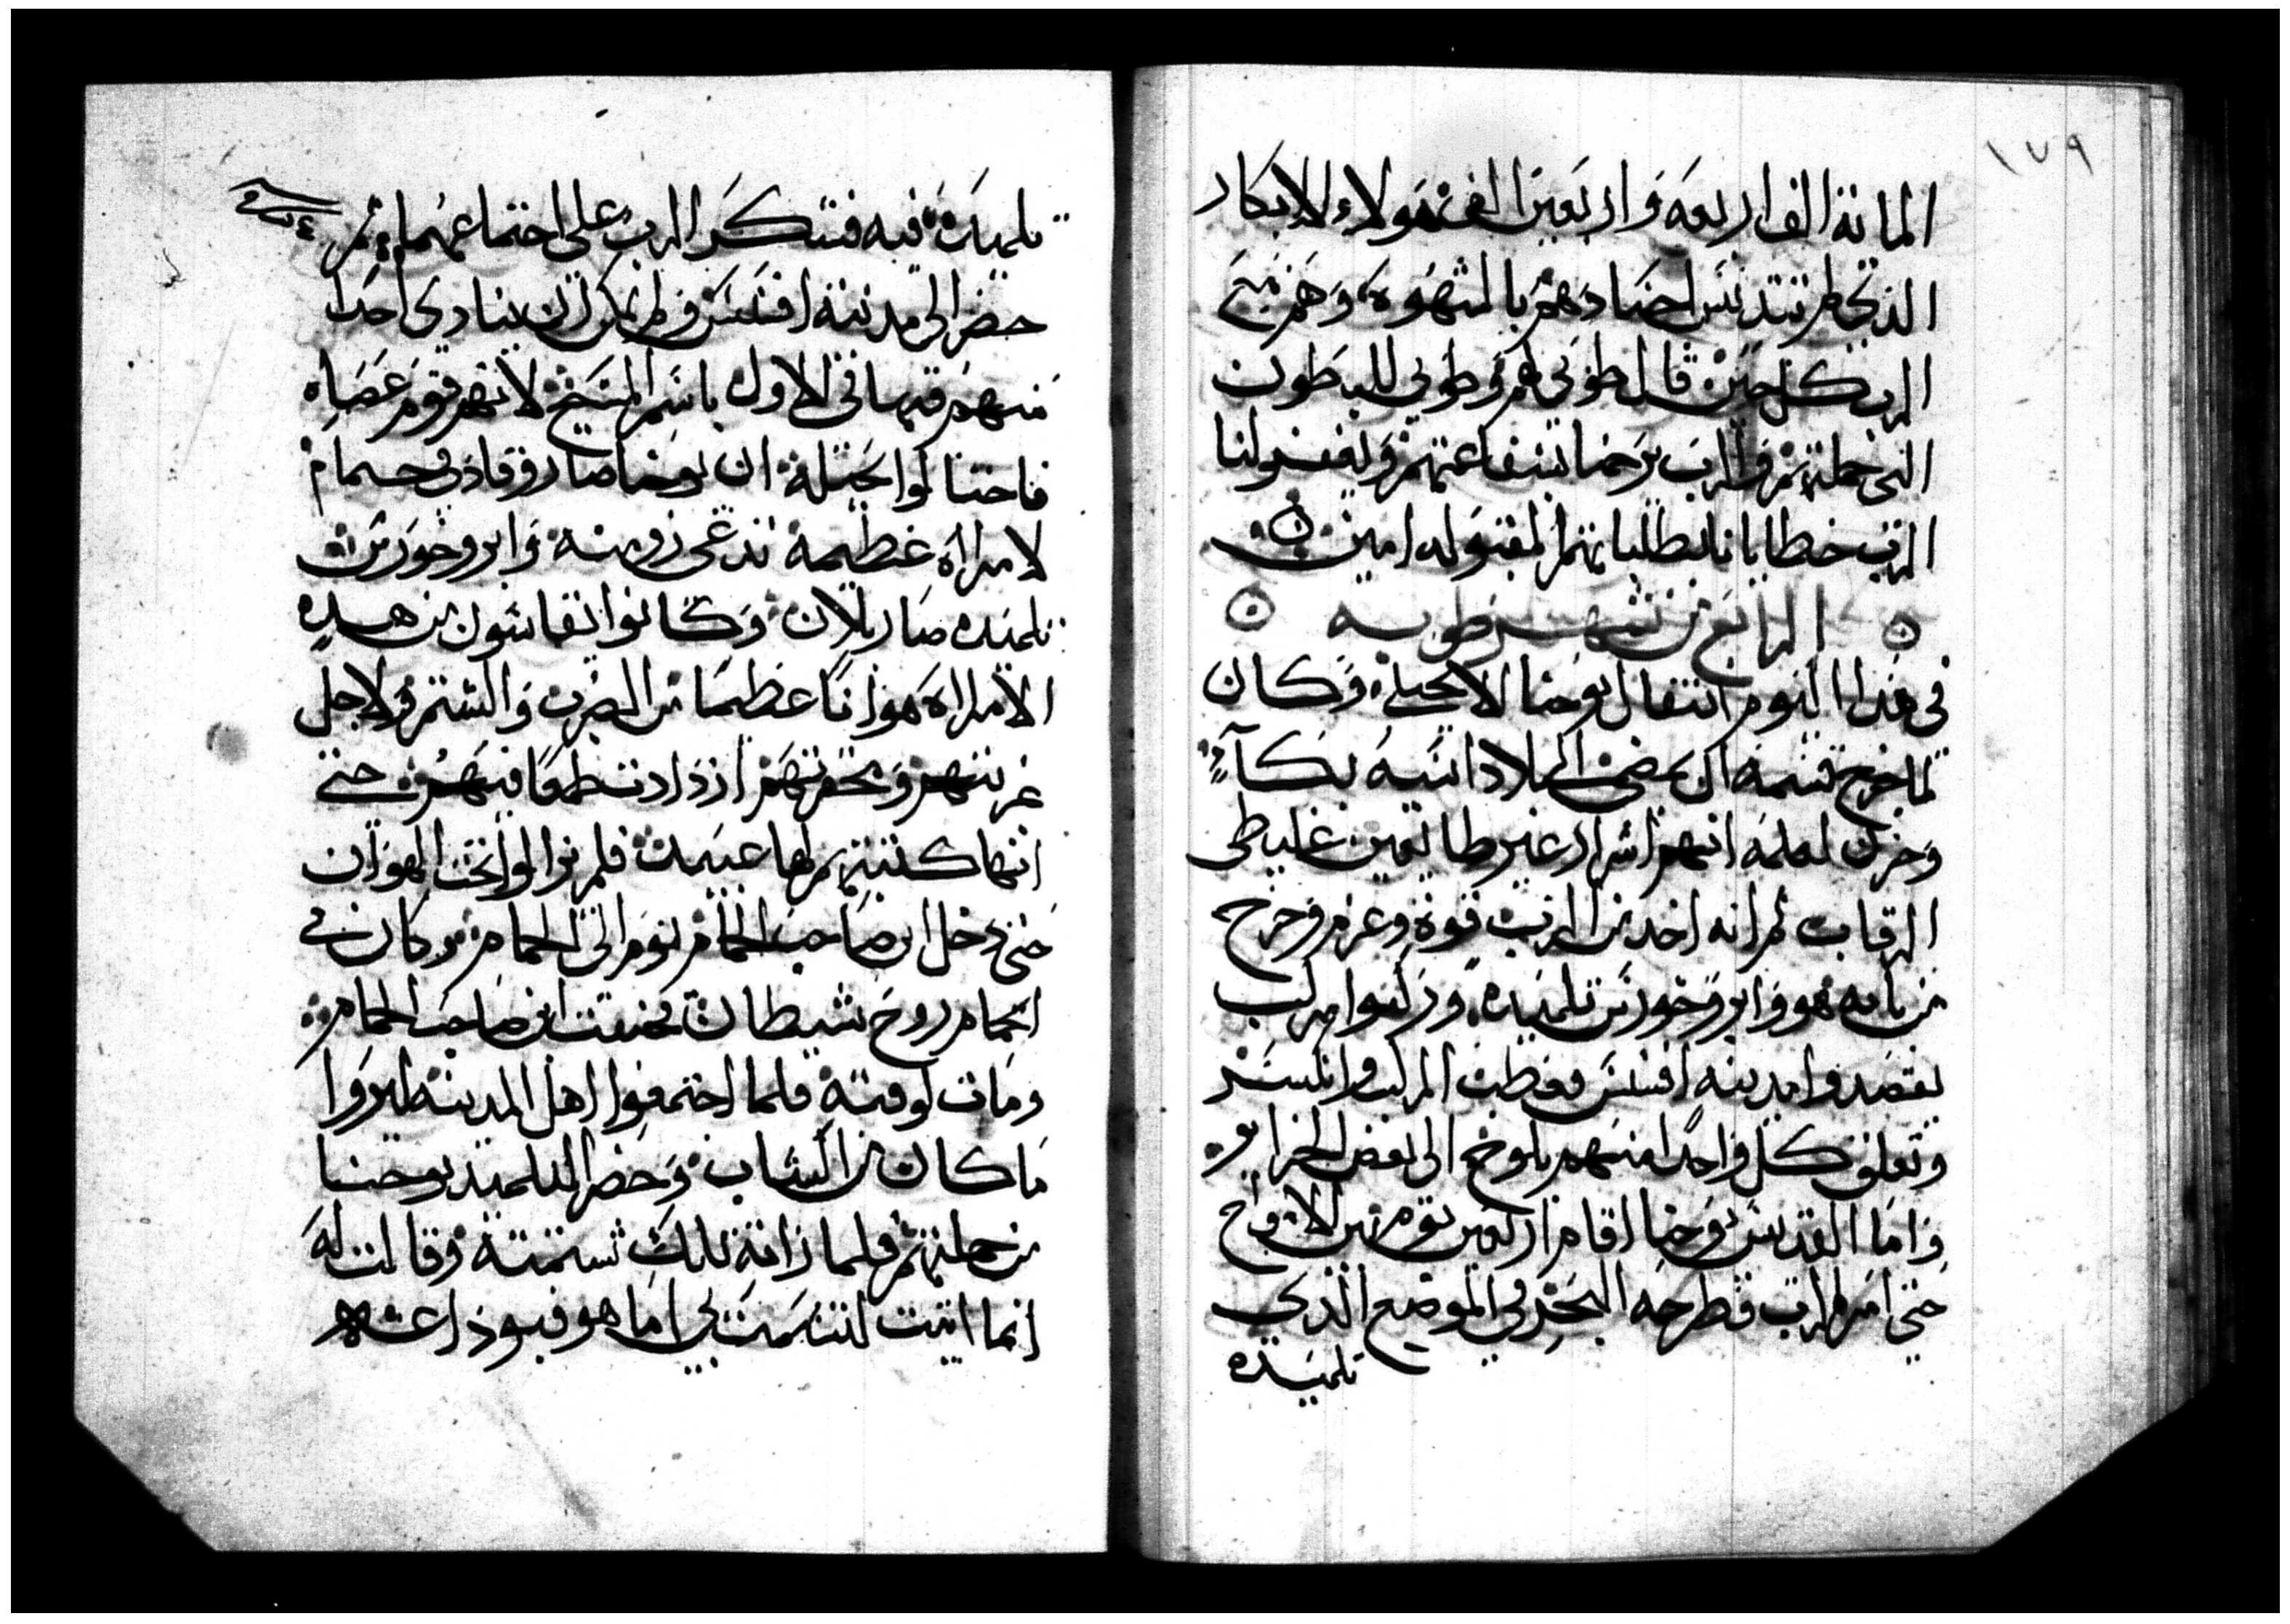 ١٧٩
الماية الف اربعه واربعين الف هولاء الابكار
الذي لم تتدنس اجسادهم بالشهوه وهم مع
الرب كل حين قال طوبي لهم وطوبي للبطون
التي حملتهم والرب يرحمنا بشفاعتهم ويغفر لنا
الرب خطايانا بطلباتهم المقبوله امين
الرابع من شهر طوبه
في هذا اليوم انتقال يوحنا الانجيلي وكان
لما خرج قسمه ان يمضي الي بلاد اسيه بكآء
وحزن لعلمه انهم اشرار غير طايعين غليظي
الرقاب ثم انه اخد من الرب قوة وعزم وخرج
من يافه هو وابروخورس تلميده وركبوا مركب
يقصدوا مدينه افسس فعطبت المركب وانكسر
وتعلق كل واحدا منهم بلوح الى بعض الجزاير
واما القديس يوحنا اقام اربعين يوم بين الامواج
حتى امر الرب فطرحه البحر في الموضع الذي
تلميده
تلميده فيه فتشكر الرب على اجتماعهما ثم
حضر الي مدينة افسس ولم يمكن ان ينادي احدا
منهم فيها في الاول باسم المسيح لانهم قوم عصاه
فاحتالوا بحيلة ان يوحنا صار وقاد في حمام
لامراه عظيمة تدعى رومنه وابروخورس
تلميده صار بلان وكانوا يقاسون من هده
الامراه هوانا عظيما من الضرب والشتم ولاجل
غربتهم وحقرتهم ازدادت طمعا فيهم حتى
انها كتبتهم لها عبيد فلم يزالوا تحت الهوان
حتى دخل ابن صاحب الحمام يوم الى الحمام وكان في
الحمام روح شيطان فخنقت ابن صاحب الحمام
ومات لوقته فلما اجتمعوا اهل المدينه ليروا
ما كان من الشاب وحضر التلميد يوحنا
من جملتهم فلما راته تلك شتمته وقالت له
انما اتيت لتشمت بي اما هو فبوداعته